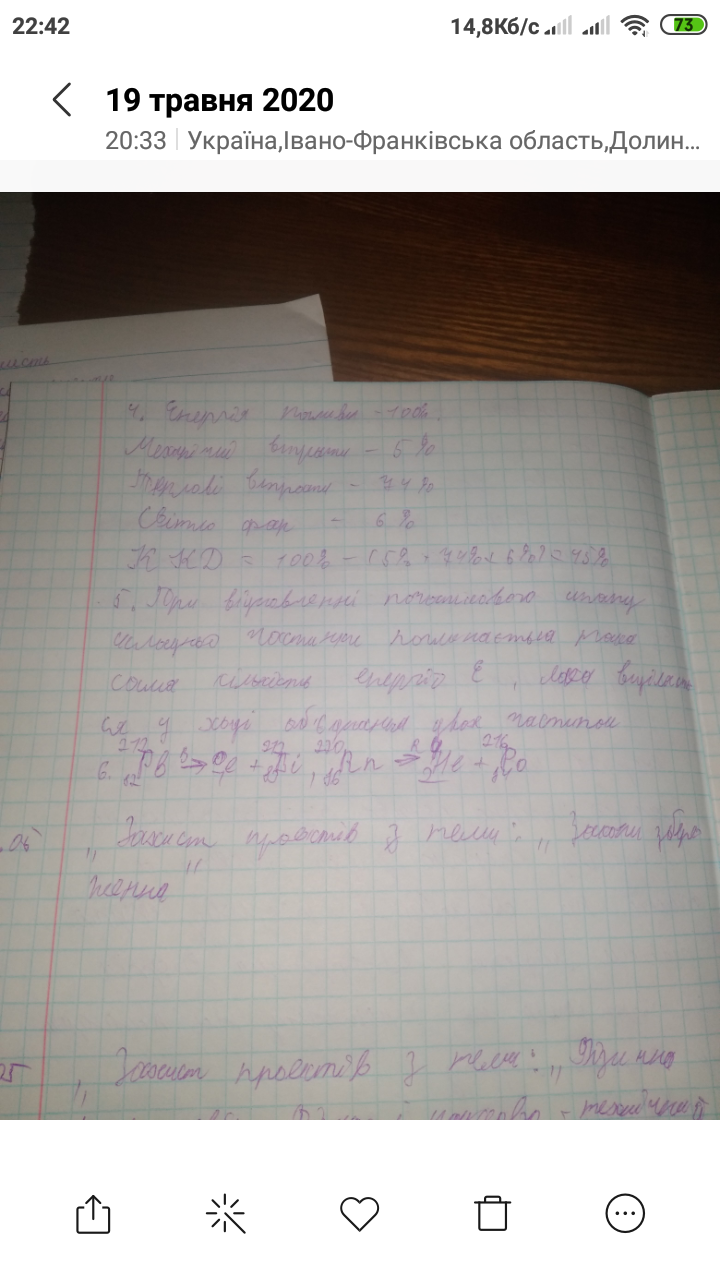 22:42
14,8Кб/с
73
19 травня 2020
20:33 | Україна,Івано-Франківська область,Долин...
4. Енергія палива - 100%.
Механічні втрати - 5%
Теплові втрати - 74%
Світло фар - 6%
ККД = 100% - (5% + 74% + 6%) = 45%
5. При відновленні початкового стану
частинки поглинається така
сама кількість енергії E, яка виділяєть
ся у ході об'єднання цих частинок
6. ²¹²₈₂Pb → e + Bi, ²²⁰₈₆Rn → ⁴₂He + ²¹⁶₈₄Po
„ Захист проектів з теми: „ Закони збере
ження "
„ Захист проектів з теми: „ Фізична